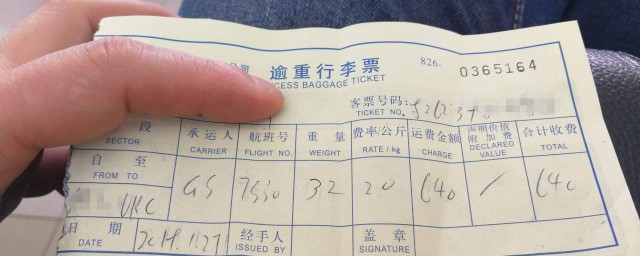 公司 逾重行李票 826. 0365164
EXCESS BAGGAGE TICKET
客票号码:
TICKET NO.
段 承运人 航班号 重量 费率/公斤 运费金额 声明价值附加费 合计收费
SECTOR CARRIER FLIGHT NO. WEIGHT RATE / kg CHARGE DECLARED VALUE TOTAL
自 至 GS 32 20 640 / 640
FROM TO
URC
日期 经手人 盖章
DATE ISSUED BY SIGNATURE